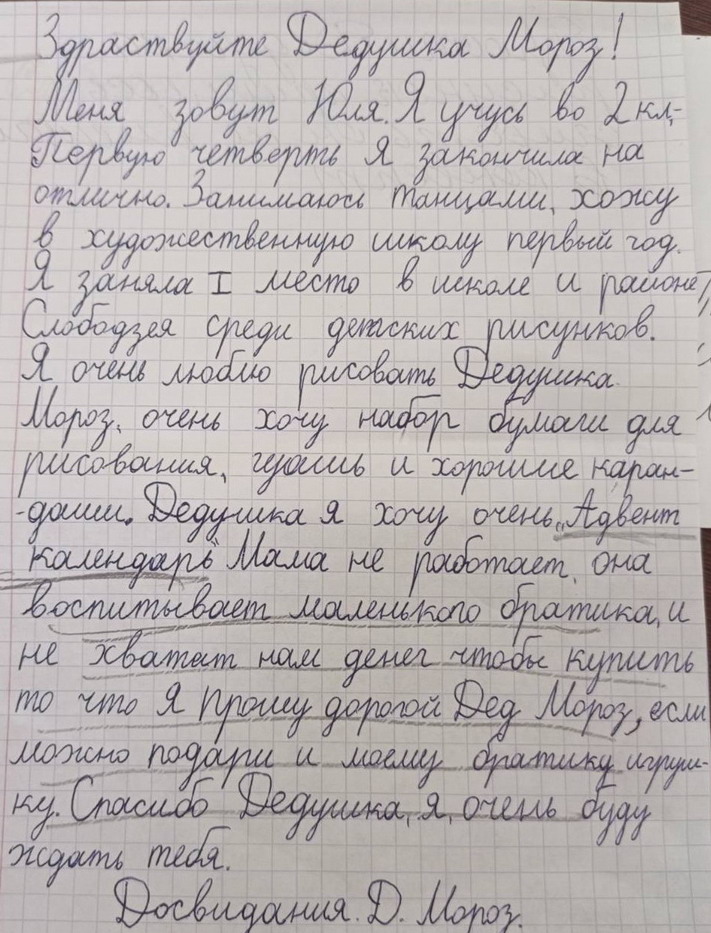 Здраствуйте Дедушка Мороз!
Меня зовут Юля. Я учусь во 2 кл,-
Первую четверть Я закончила на
отлично. Занимаюсь танцами, хожу
в художественную школу первый год.
Я заняла I место в школе и районе
Слободзея среди детских рисунков.
Я очень люблю рисовать Дедушка
Мороз, очень хочу набор бумаги для
рисования, гуашь и хорошие каран-
-даши. Дедушка я хочу очень „Адвент
календарь" Мама не работает, она
воспитывает маленького братика, и
не хватат нам денег чтобы купить
то что Я прошу дорогой Дед Мороз, если
можно подари и моему братику игруш-
ку. Спасибо Дедушка, я, очень буду
ждать тебя.
Досвидания. Д. Мороз.